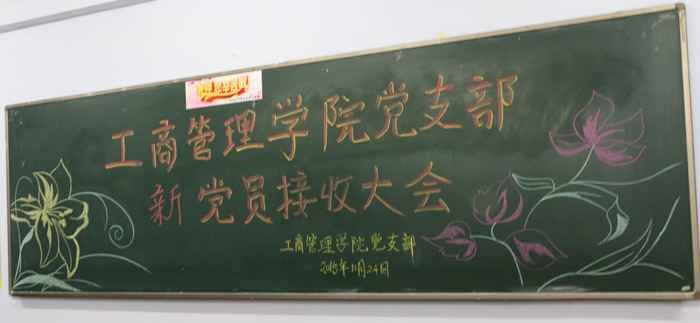 工商管理学院党支部
新党员接收大会
工商管理学院党支部
2015年11月24日